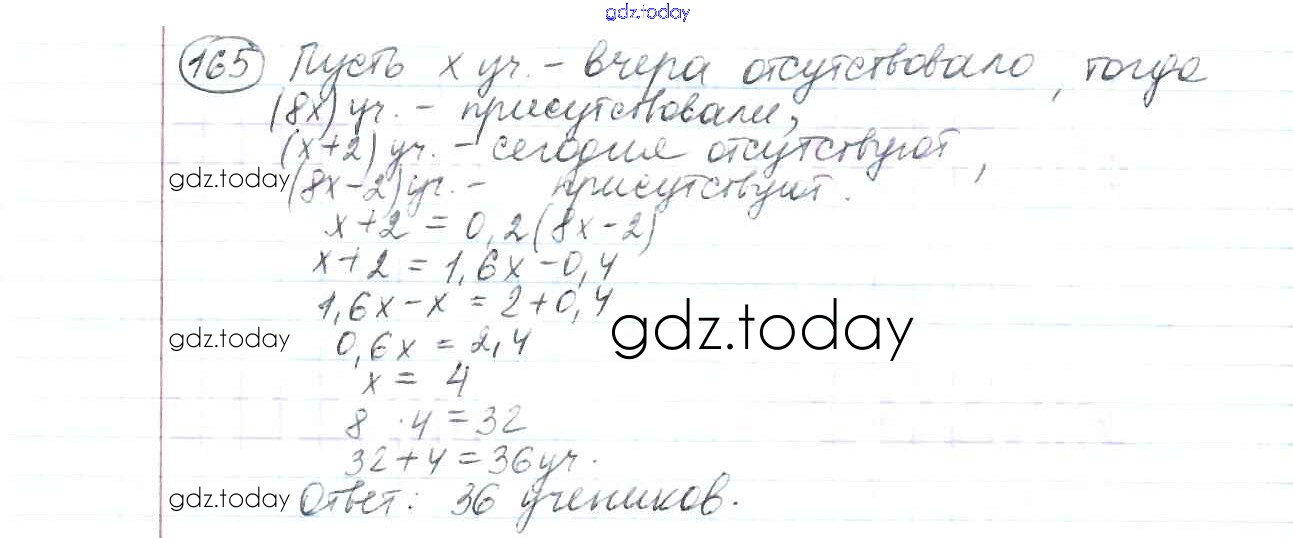 gdz.today
165 Пусть x уч. - вчера отсутствовало, тогда
(8x) уч. - присутствовали,
(x+2) уч. - сегодня отсутствуют,
gdz.today (8x-2) уч. - присутствуют.
x+2 = 0,2(8x-2)
x+2 = 1,6x-0,4
1,6x-x = 2+0,4
gdz.today
gdz.today 0,6x = 2,4
x = 4
8 · 4 = 32
32+4=36 уч.
gdz.today Ответ: 36 учеников.